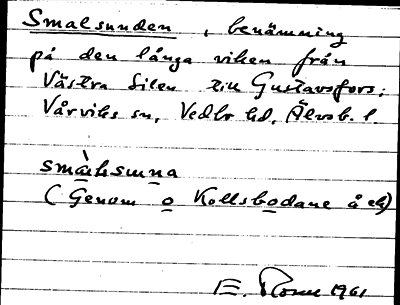 Smalsunden, benämning
på den långa viken från
Västra Silen till Gustavsfors;
Vårviks sn, Vedbo hd, Älvsb. l.
smàlsunna
(Genom o Kollsbodane å
E. 1961